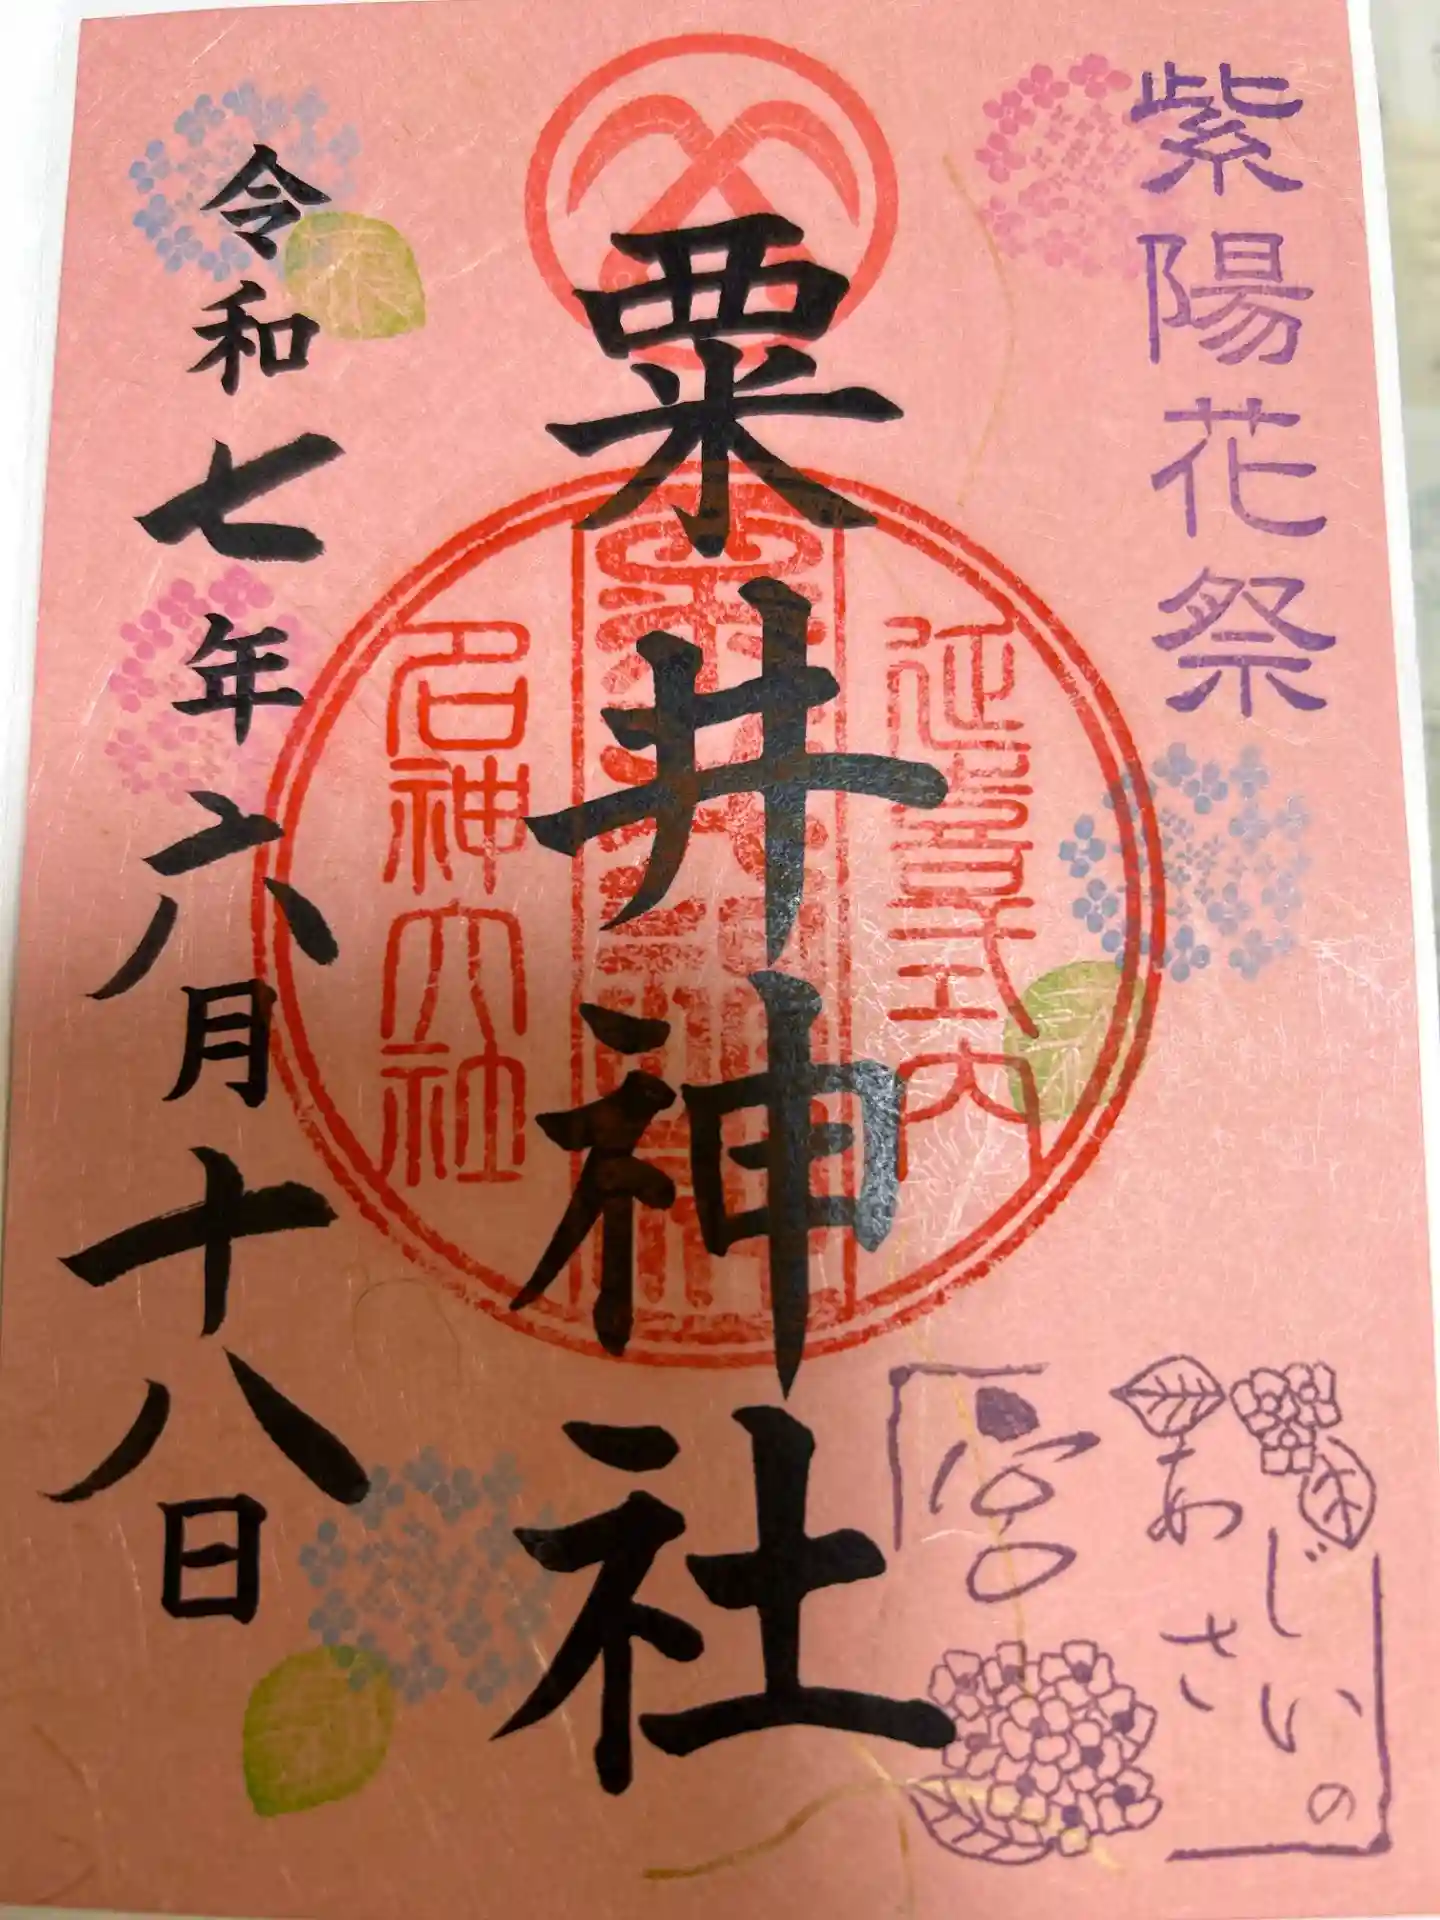 紫陽花祭
あじさいの
宮
延喜式内
名神大社
粟井神社
令和七年六月十八日